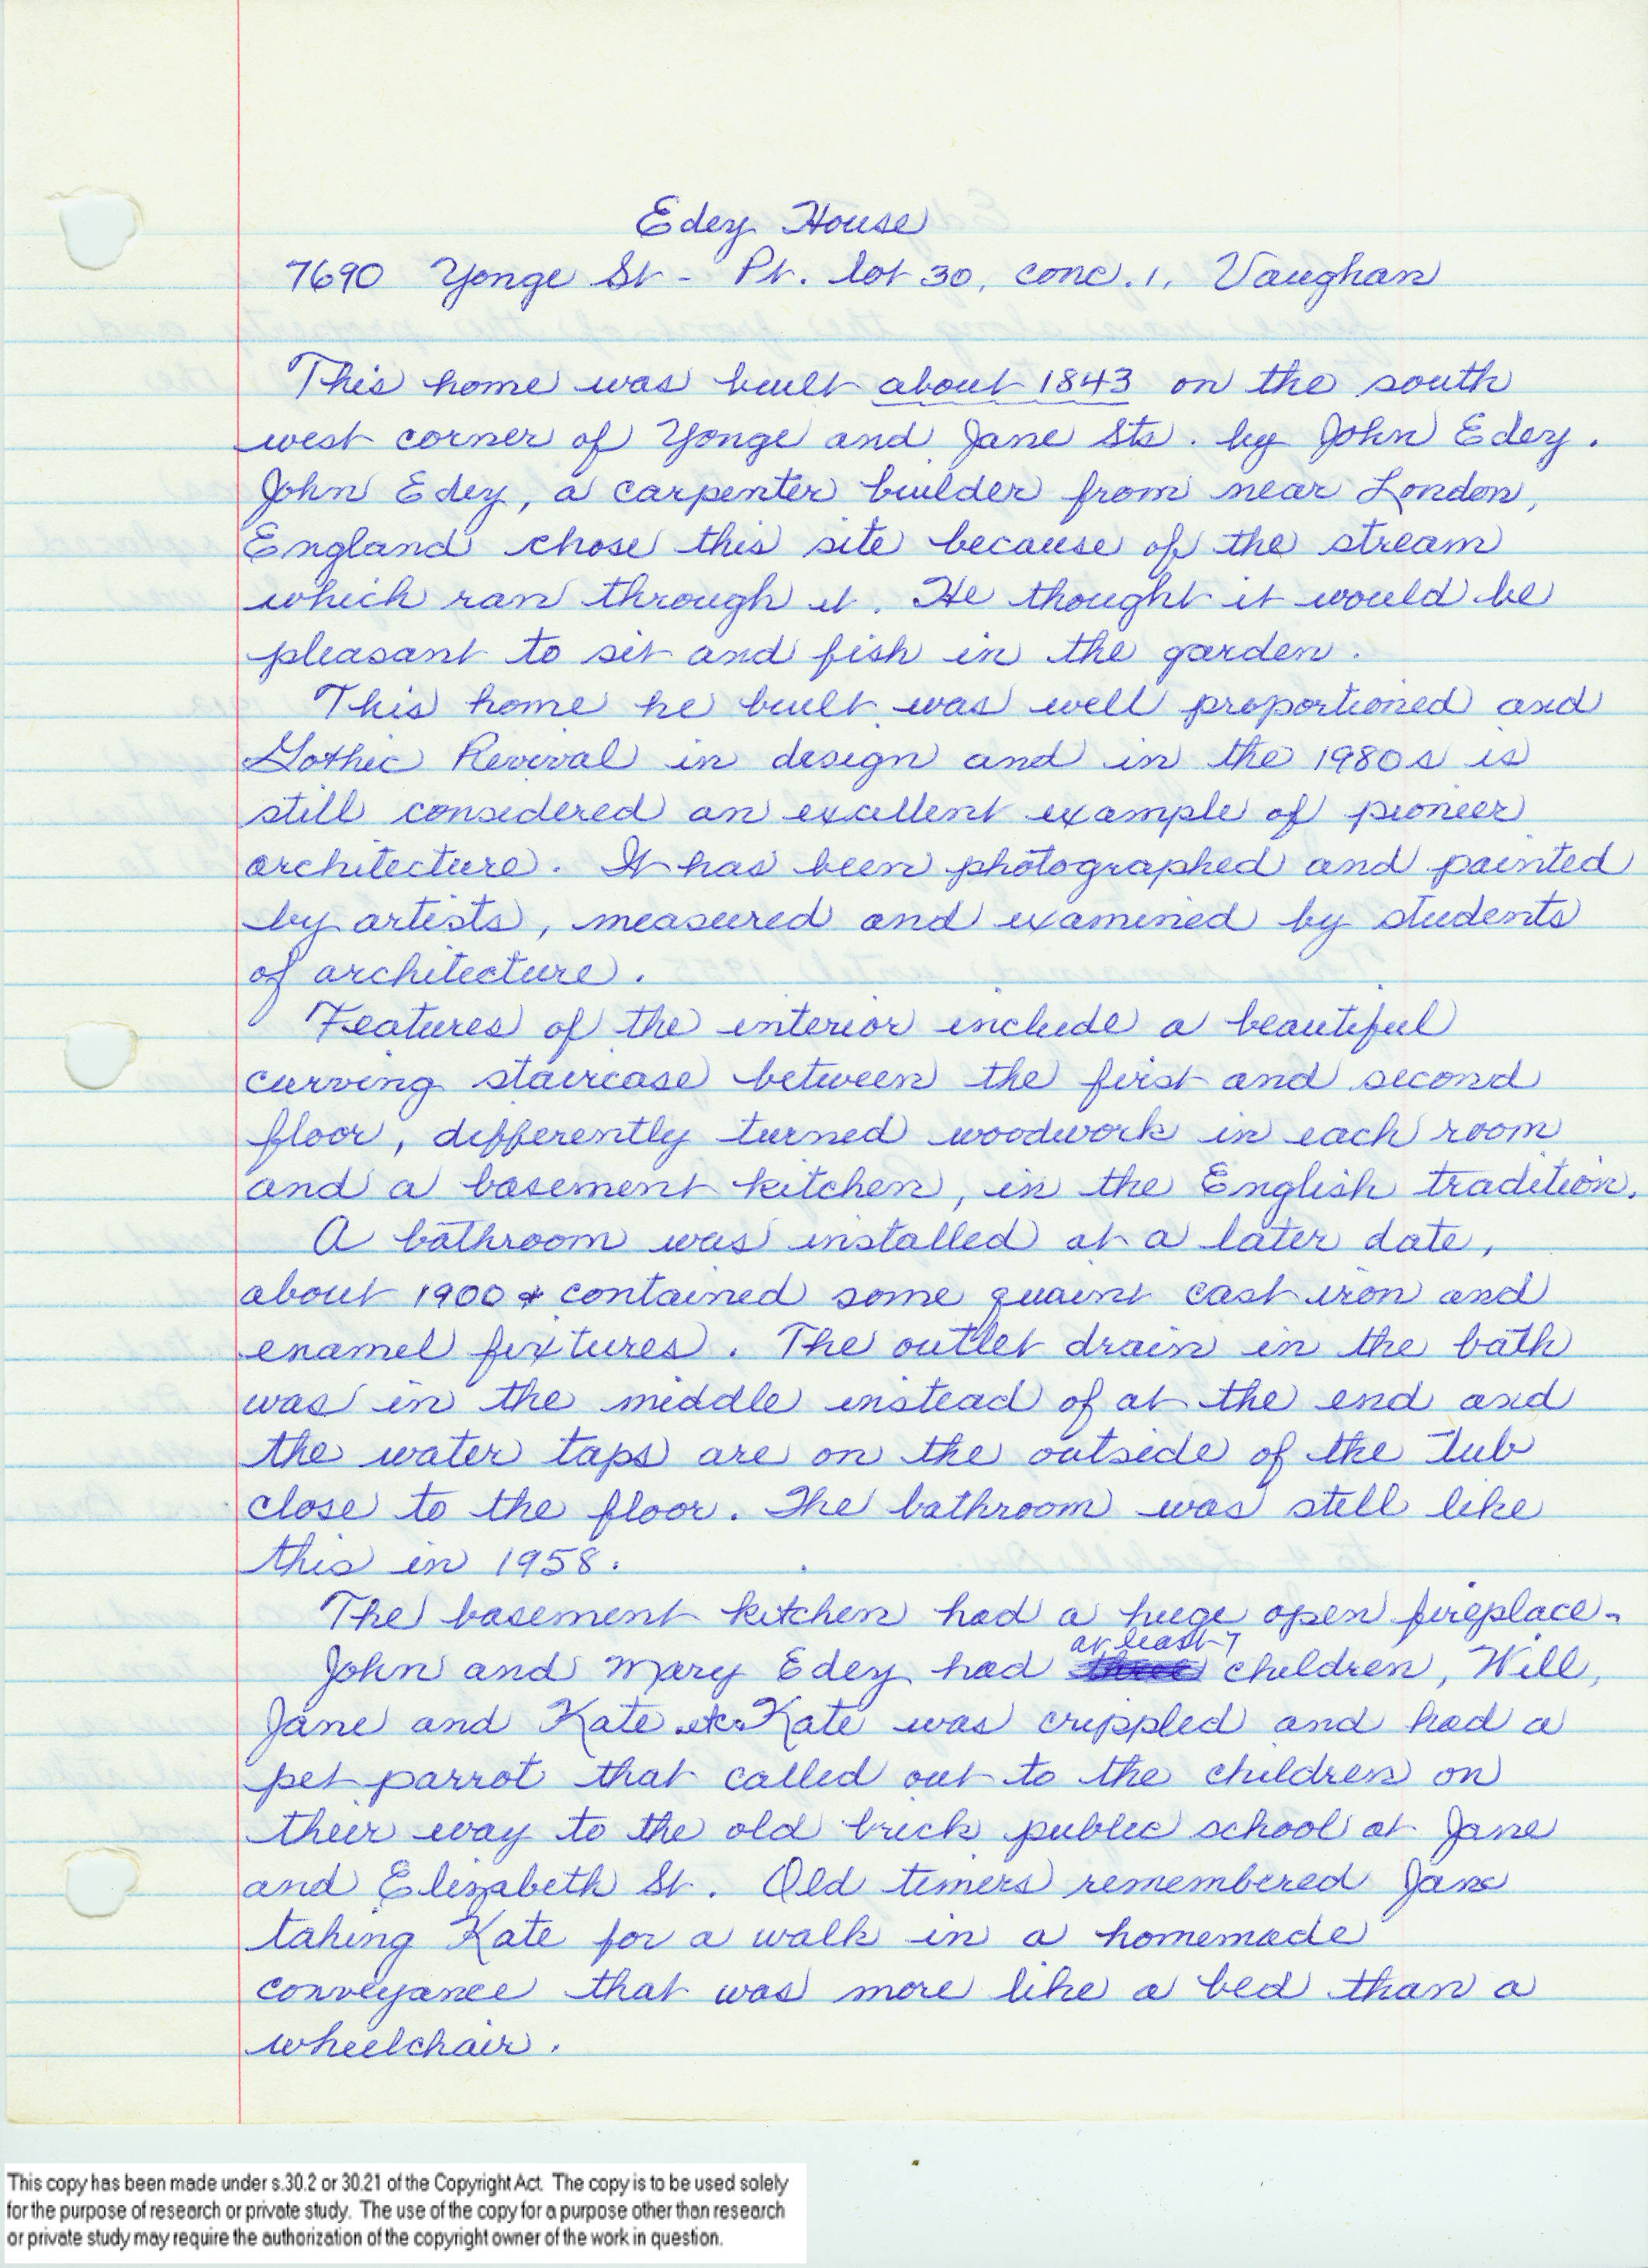 Edey House
7690 Yonge St - Pt. lot 30, conc. 1, Vaughan
This home was built about 1843 on the south
west corner of Yonge and Jane Sts. by John Edey.
John Edey, a carpenter builder from near London,
England chose this site because of the stream
which ran through it. He thought it would be
pleasant to sit and fish in the garden.
This home he built was well proportioned and
Gothic Revival in design and in the 1980s is
still considered an excellent example of pioneer
architecture. It has been photographed and painted
by artists, measured and examined by students
of architecture.
Features of the interior include a beautiful
curving staircase between the first and second
floor, differently turned woodwork in each room
and a basement kitchen, in the English tradition.
A bathroom was installed at a later date,
about 1900 & contained some quaint cast iron and
enamel fixtures. The outlet drain in the bath
was in the middle instead of at the end and
the water taps are on the outside of the tub
close to the floor. The bathroom was still like
this in 1958.
The basement kitchen had a huge open fireplace.
at least 7
John and Mary Edey had children, Will,
Jane and Kate etc. Kate was crippled and had a
pet parrot that called out to the children on
their way to the old brick public school at Jane
and Elizabeth St. Old timers remembered Jane
taking Kate for a walk in a homemade
conveyance that was more like a bed than a
wheelchair.
This copy has been made under s.30.2 or 30.21 of the Copyright Act. The copy is to be used solely
for the purpose of research or private study. The use of the copy for a purpose other than research
or private study may require the authorization of the copyright owner of the work in question.